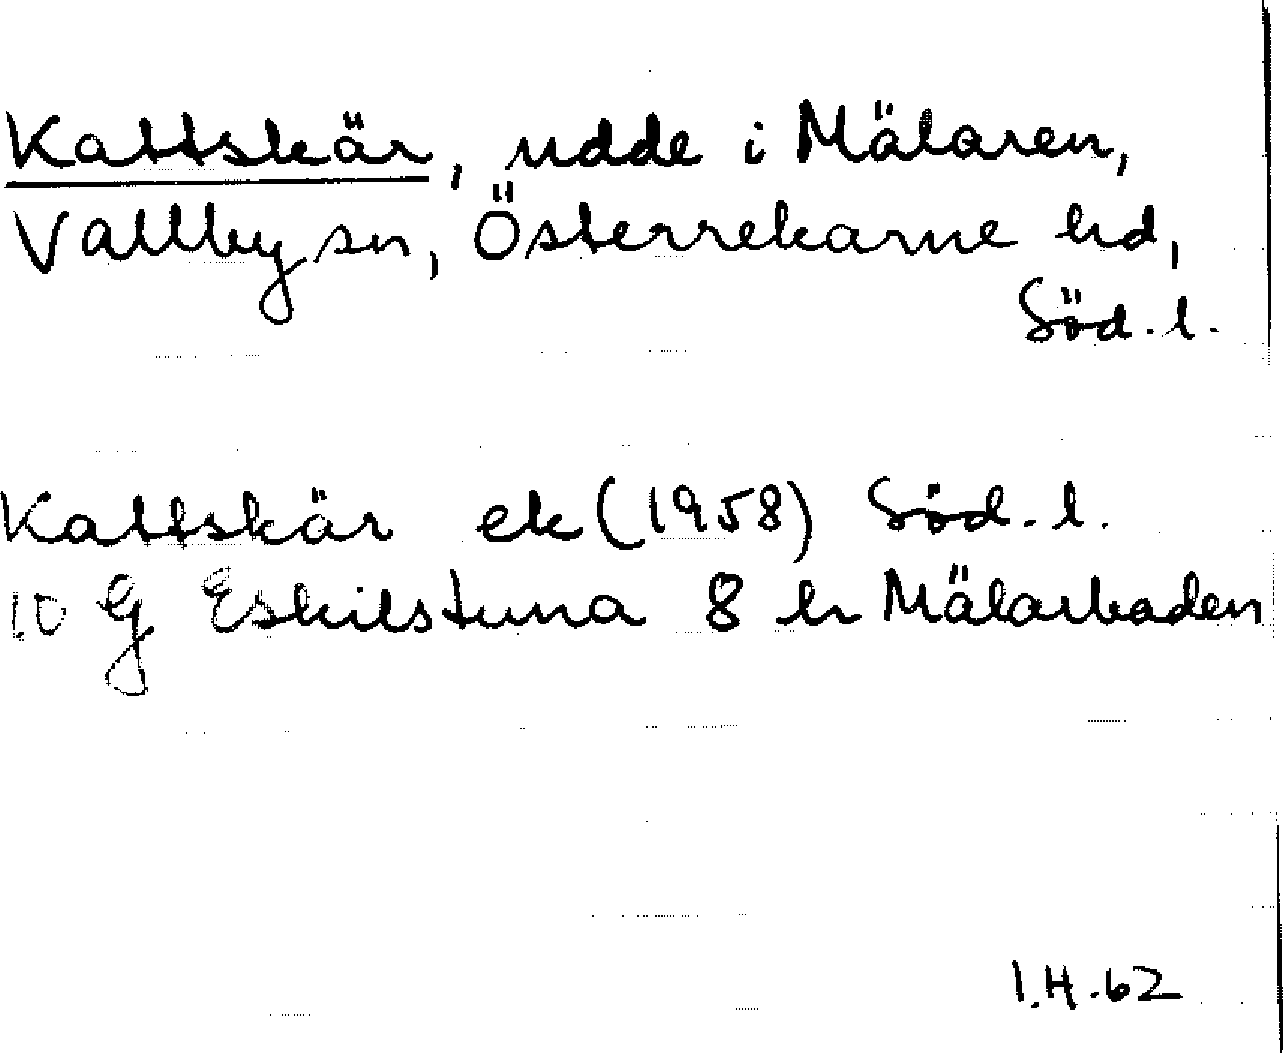 Kattskär, udde i Mälaren,
Vallby sn, Österrekarne hd,
Söd. l.
Kattskär ek (1958) Söd. l.
10 G Eskilstuna 8 h Mälarbaden
I.H. 62